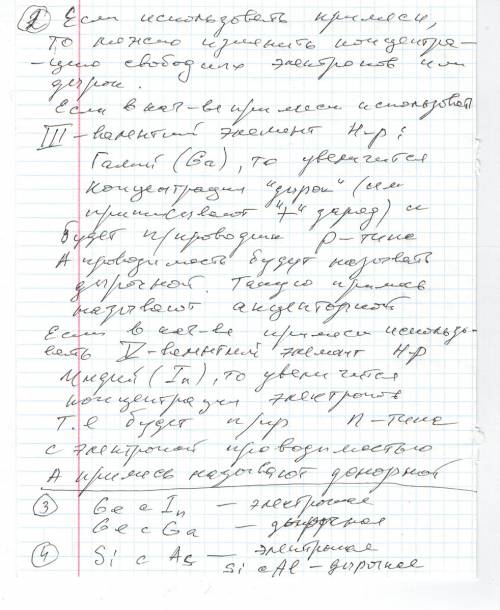 ② Если использовать примеси,
то можно изменить концентра-
-цию свободных электронов или
дырок.
Если в кач-ве примеси использовать
III-валентный элемент Н-р:
Галий (Ga), то увеличится
концентрация "дырок" (им
приписывают "+" заряд) и
будет п/проводник p-типа
А проводимость будут называть
дырочной. Такую примесь
называют акцепторной
Если в кач-ве примеси использо-
вать V-валентный элемент Н-р
Индий (In), то увеличится
концентрация электронов
Т.е будет п/пр n-типа
с электроной проводимостью
А примесь называют донорной
③ Ge с In — электронная
Ge с Ga — дырочная
④ Si с As — электронная
Si с Al — дырочная